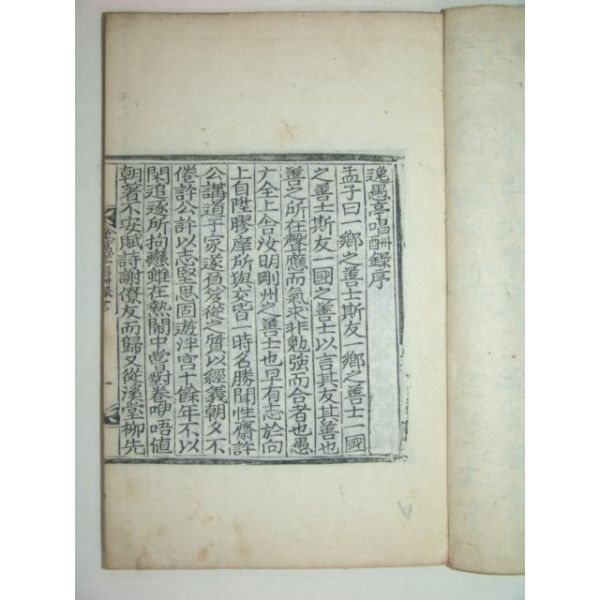 逸愚亭唱酬錄序
孟子曰一鄕之善士斯友一鄕之善士一國
之善士斯友一國之善士以言其友其善也
善之所在聲應而氣求非勉强而合者也愚
上舍汝明剛州之善士也早有志於向
上自陞膠庠所與交皆一時名勝聞性齋許
公講道于家遂負笈從之質以經義朝夕不
倦許公許以志堅思固遊泮宮十餘年不以
閑追逐所拘戀雖在熱鬧中嘗對卷咿唔値
朝著不安賦詩謝僚友而歸又從溪堂柳先